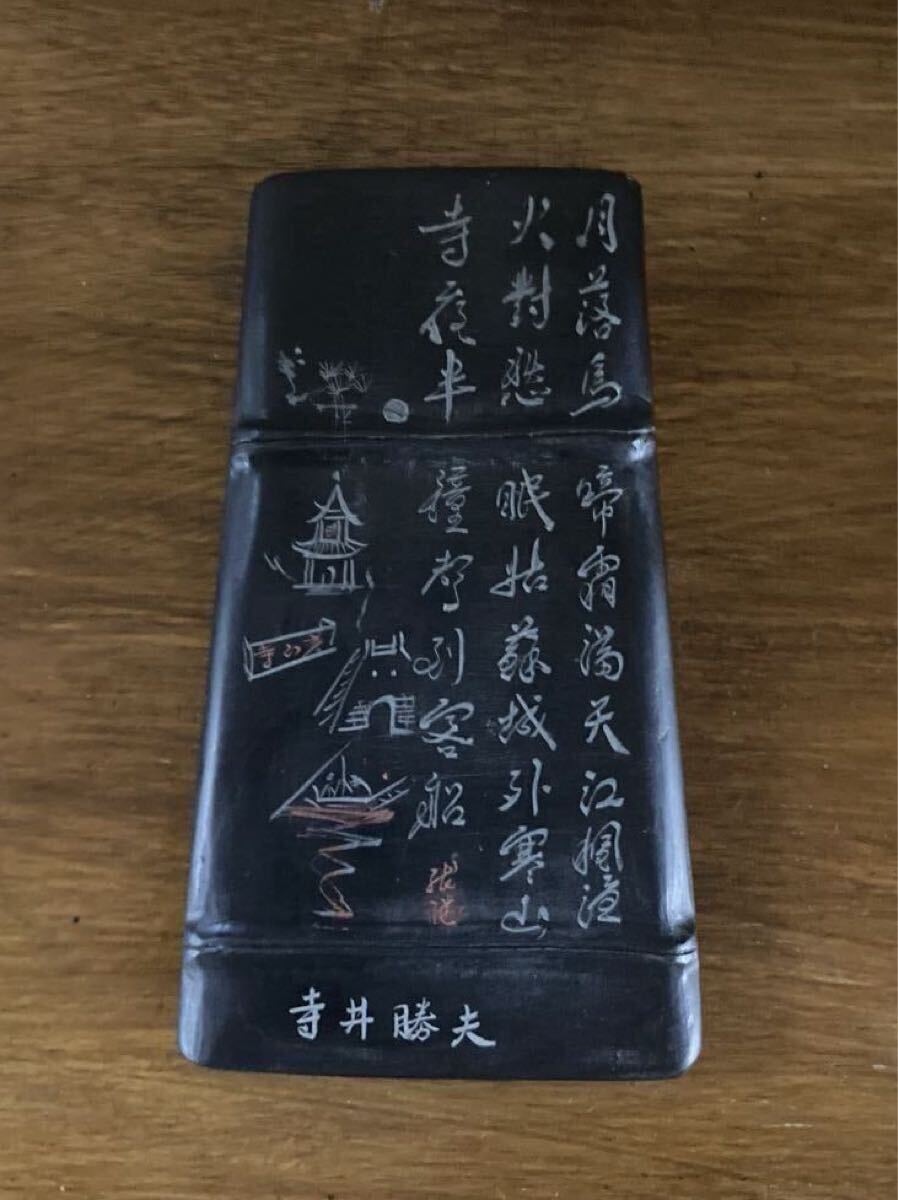 月落烏啼霜滿天江楓漁
火對愁眠姑蘇城外寒山
寺夜半鐘聲到客船
张继
寒山寺
寺井勝夫